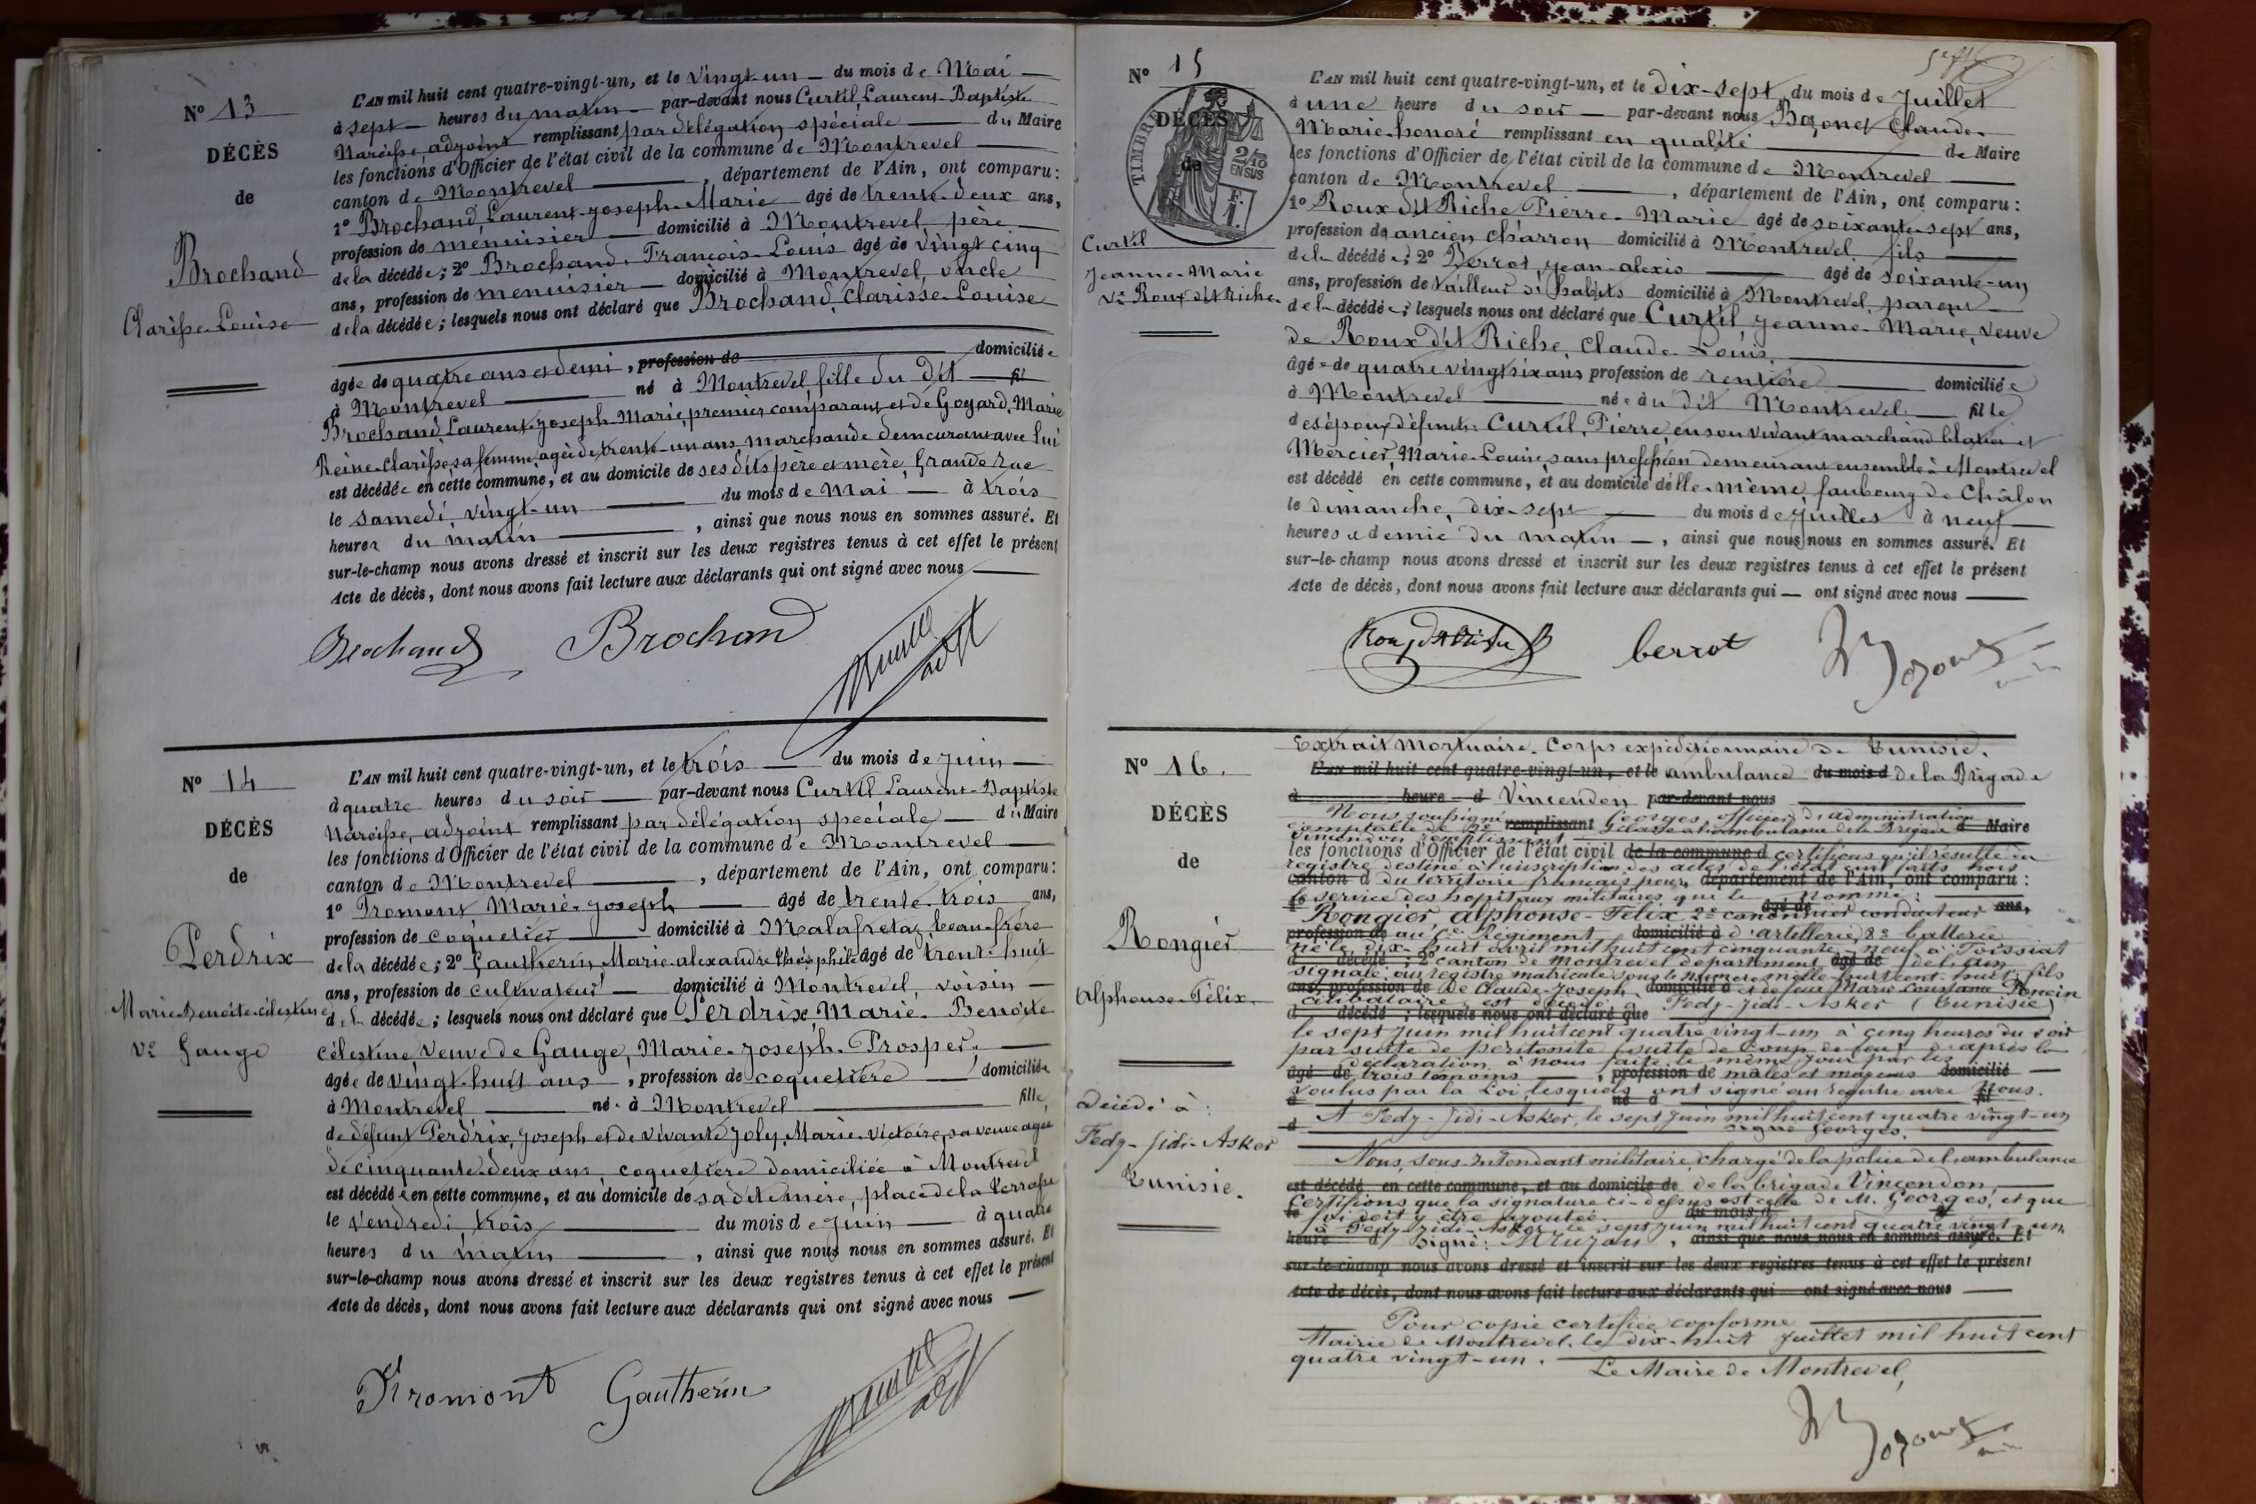 Nº 13
DÉCÈS
de
Brochand
Clarisse Louise
L'AN mil huit cent quatre-vingt-un, et le Vingt-un du mois de Mai
à sept heures du matin par-devant nous Curtil, Laurent-Baptiste
Narcisse, adjoint remplissant par délégation spéciale du Maire
les fonctions d'Officier de l'état civil de la commune de Montrevel
canton de Montrevel, département de l'Ain, ont comparu:
1º Brochand, Laurent-Joseph-Marie âgé de trente-deux ans,
profession de menuisier domicilié à Montrevel, père
de la décédée; 2º Brochand François-Louis âgé de vingt cinq
ans, profession de menuisier domicilié à Montrevel, oncle
de la décédée; lesquels nous ont déclaré que Brochand, Clarisse-Louise
âgée de quatre ans et demi, profession de domiciliée
à Montrevel né à Montrevel fille du dit fil
Brochand, Laurent-Joseph-Marie, premier comparant et de Goyard, Marie
Reine-Clarisse sa femme âgée de trente-un ans marchande demeurant avec lui
est décédée en cette commune, et au domicile de ses dits père et mère, Grande rue
le samedi vingt-un du mois de Mai à trois
heures du matin, ainsi que nous nous en sommes assuré. Et
sur-le-champ nous avons dressé et inscrit sur les deux registres tenus à cet effet le présent
Acte de décès, dont nous avons fait lecture aux déclarants qui ont signé avec nous
Brochand Brochand
Nº 14
DÉCÈS
de
Perdrix
Marie Benoîte Célestine
Vᵉ Gauge
L'AN mil huit cent quatre-vingt-un, et le trois du mois de Juin
à quatre heures du soir par-devant nous Curtil Laurent-Baptiste
Narcisse, adjoint remplissant par délégation spéciale du Maire
les fonctions d'Officier de l'état civil de la commune de Montrevel
canton de Montrevel, département de l'Ain, ont comparu:
1º Fromont, Marie-Joseph âgé de trente-trois ans,
profession de coquetier domicilié à Malafretaz beau-frère
de la décédée; 2º Gautherin, Marie-alexandre théophile âgé de trente-huit
ans, profession de cultivateur domicilié à Montrevel, voisin
de la décédée; lesquels nous ont déclaré que Perdrix, Marie-Benoîte
célestine, Veuve de Gauge, Marie-Joseph-Prosper,
âgée de vingt-huit ans, profession de coquetière domiciliée
à Montrevel née à Montrevel fille
de défunt Perdrix, Joseph et de vivante Joly, Marie-Victoire, sa veuve agée
de cinquante-deux ans, coquetière domiciliée à Montrevel
est décédée en cette commune, et au domicile de sa dite mère, place de la terrasse
le Vendredi, trois du mois de Juin à quatre
heures du matin, ainsi que nous nous en sommes assuré. Et
sur-le-champ nous avons dressé et inscrit sur les deux registres tenus à cet effet le présent
Acte de décès, dont nous avons fait lecture aux déclarants qui ont signé avec nous
Fromont Gautherin
Nº 15
DÉCÈS
de
TIMBRE
2/10
EN SUS
F.
1.
Curtil
Jeanne-Marie
Vᵉ Roux dit Riche
L'AN mil huit cent quatre-vingt-un, et le dix-sept du mois de Juillet
à une heure du soir par-devant nous Bozonet Claude
Marie-honoré remplissant en qualité de Maire
les fonctions d'Officier de l'état civil de la commune de Montrevel
canton de Montrevel, département de l'Ain, ont comparu:
1º Roux dit Riche, Pierre-Marie âgé de soixante-sept ans,
profession de ancien charron domicilié à Montrevel, fils
de la décédée; 2º Berrot, Jean-alexis âgé de soixante-un
ans, profession de tailleur d'habits domicilié à Montrevel, parent
de la décédée; lesquels nous ont déclaré que Curtil, Jeanne-Marie, Veuve
de Roux dit Riche, Claude-Louis,
âgée de quatre vingt six ans profession de rentière domiciliée
à Montrevel née au dit Montrevel fille
des époux défunts: Curtil, Pierre, en son vivant marchand et
Mercier, Marie-Louise, sans profession demeurant ensemble à Montrevel
est décédé en cette commune, et au domicile d'elle-même, faubourg de Châlon
le dimanche, dix-sept du mois de Juillet à neuf
heures et demie du matin, ainsi que nous nous en sommes assuré. Et
sur-le-champ nous avons dressé et inscrit sur les deux registres tenus à cet effet le présent
Acte de décès, dont nous avons fait lecture aux déclarants qui ont signé avec nous
Roux dit Riche Berrot Bozonet
Nº 16.
DÉCÈS
de
Rongier
Alphonse-Félix
décédé à:
Fedj-Jidi-Asker
Tunisie.
Extrait Mortuaire. Corps expéditionnaire de Tunisie.
L'AN mil huit cent quatre-vingt-un, et le ambulance du mois d de la Brigade
à heure d Vincendon par-devant nous
Nous soussigné Georges, officier d'administration
comptable de 2ᵉ remplissant classe à l'ambulance de la Brigade d Maire
Vincendon remplissant
les fonctions d'Officier de l'état civil de la commune d certifions qu'il résulte du
registre destiné à l'inscription des actes de l'état civil faits hors
canton d du territoire français pour, département de l'Ain, ont comparu:
le service des hôpitaux militaires que le nommé:
1º Rongier Alphonse-Félix, 2ᵉ canonnier conducteur âgé de ans,
profession de au Régiment domicilié à d'artillerie, 8ᵉ batterie
né le dix-huit avril mil huit cent cinquante-neuf à Foissiat
d décédé; 2º canton de Montrevel département âgé de de l'ain
signalé au registre matricule sous le numéro mille huit cent huit, fils
ans, profession de De Claude-Joseph domicilié à et de feue Marie Constance Poncin
célibataire, est décédé à Fedj-Jidi-Asker (Tunisie)
d décédé; lesquels nous ont déclaré que
le sept juin mil huit cent quatre vingt-un à cinq heures du soir
par suite de péritonite suite de coup de feu d'après la
déclaration à nous faite le même jour par les
âgé de trois témoins, profession de mâles et majeurs domicilié
voulus par la loi, lesquels ont signé au registre avec Nous.
A Fedj-Jidi-Asker, le sept juin mil huit cent quatre vingt-un
signé Georges.
Nous, sous-Intendant militaire, chargé de la police de l'ambulance
est décédé en cette commune, et au domicile de de la brigade Vincendon,
Certifions que la signature ci-dessus est celle de M. Georges, et que
le foi doit y être ajoutée. du mois d à
à Fedj-Jidi-Asker, le sept juin mil huit cent quatre vingt-un
heure d signé:, ainsi que nous nous en sommes assuré. Et
sur-le-champ nous avons dressé et inscrit sur les deux registres tenus à cet effet le présent
Acte de décès, dont nous avons fait lecture aux déclarants qui ont signé avec nous
Pour copie certifiée conforme
Mairie de Montrevel, le dix-huit Juillet mil huit cent
quatre vingt-un.
Le Maire de Montrevel,
Bozonet